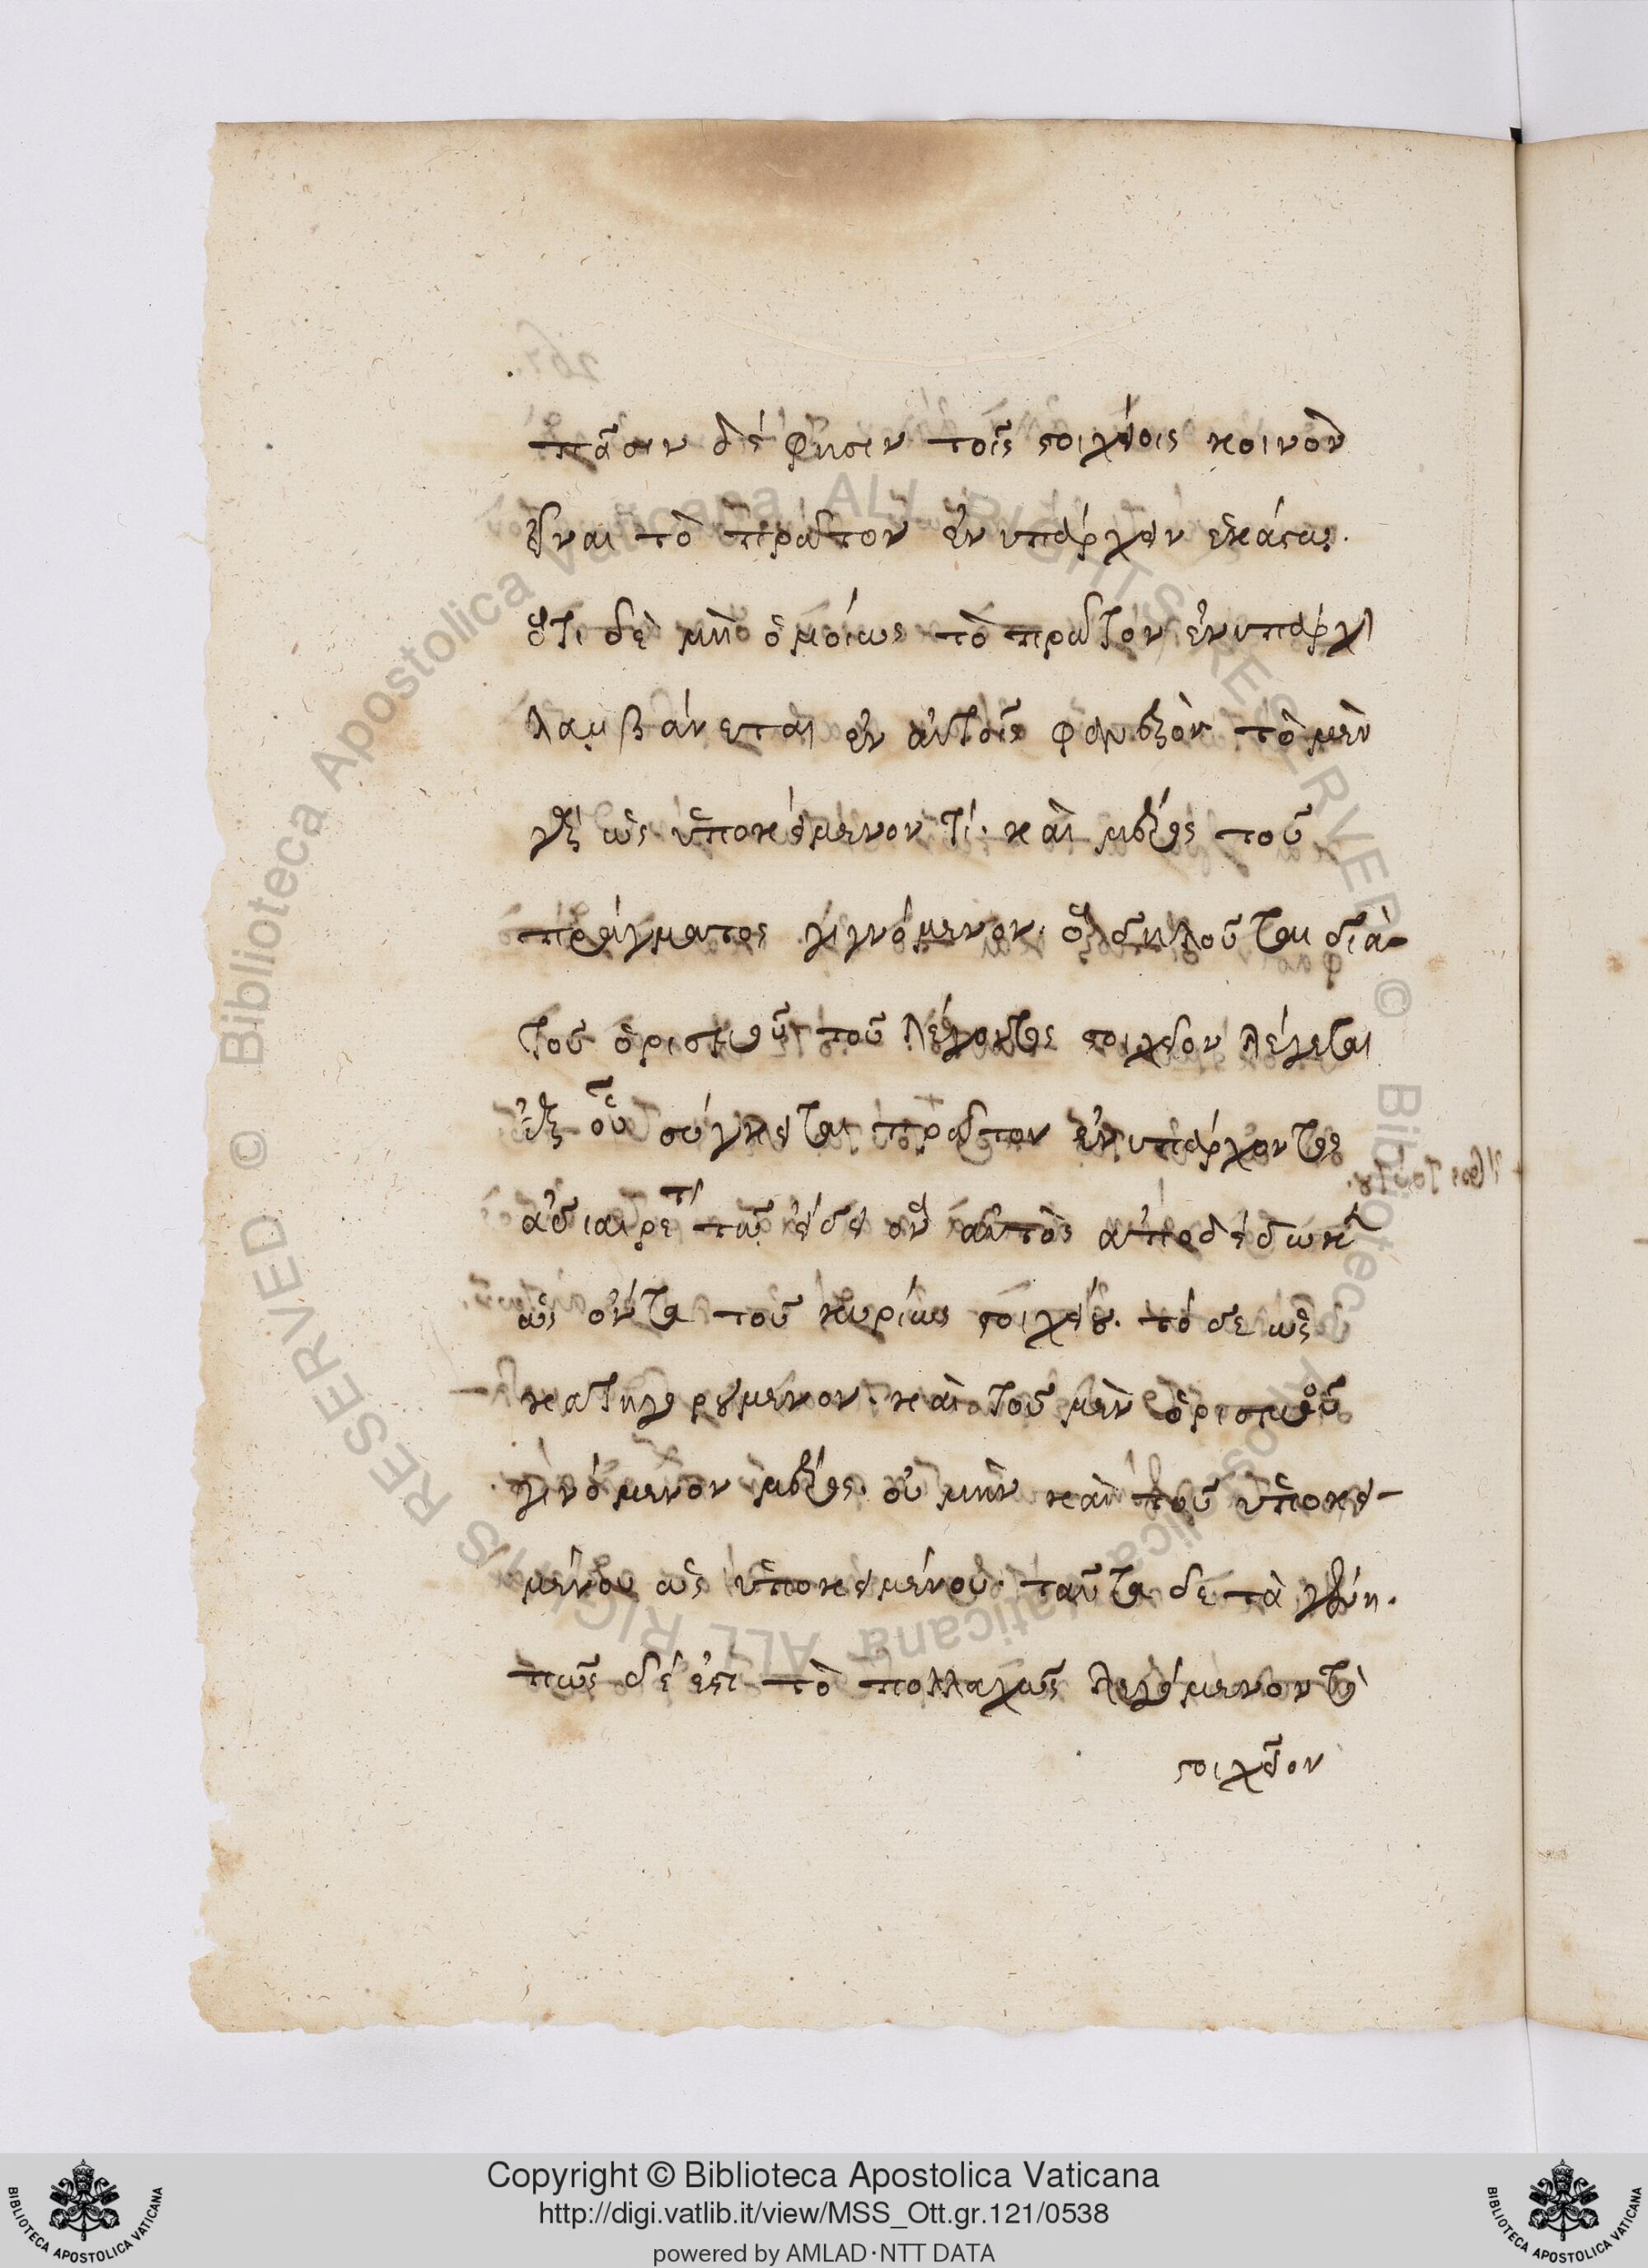 πᾶσιν δέ φησιν τοῖς στοιχείοις κοινὸν
εἶναι τὸ πρῶτον ἐνυπάρχειν ἑκάστω.
ὅτι δὲ μὴ ὁμοίως τὸ πρῶτον ἐνυπάρχειν
λαμβάνεται ἐν αὐτοῖς φανερὸν τὸ μὲν
γὰρ ὡς ὑποκείμενον τί. καὶ μέρος τοῦ
πράγματος γιγνόμενον. ὃ δηλοῦται διὰ
τοῦ ὁρισμοῦ τοῦ λέγοντος στοιχεῖον λέγεται
ἐξ οὗ σύγκειται πρῶτον ἐνυπάρχοντος
ἀδιαιρέτου τῶ εἴδει ὃν αὐτὸς ἀποδέδωκεν
ὡς ὄντα τοῦ κυρίως στοιχείου. τὸ δὲ ὡς
κατηγορούμενον. καὶ τοῦ μὲν ὁρισμοῦ
γινόμενον μέρος. οὐ μὴν καὶ τοῦ ὑποκει-
μένου ὡς ὑποκειμένου. ταῦτα δὲ τὰ γένη.
πῶς δέ ἐστι τὸ πολλαχῶς λεγόμενον τὸ
στοιχεῖον
Copyright © Biblioteca Apostolica Vaticana
http://digi.vatlib.it/view/MSS_Ott.gr.121/0538
powered by AMLAD·NTT DATA
BIBLIOTECA APOSTOLICA VATICANA
BIBLIOTECA APOSTOLICA VATICANA
© Biblioteca Apostolica Vaticana ALL RIGHTS RESERVED © Biblioteca Apostolica Vaticana ALL RIGHTS RESERVED